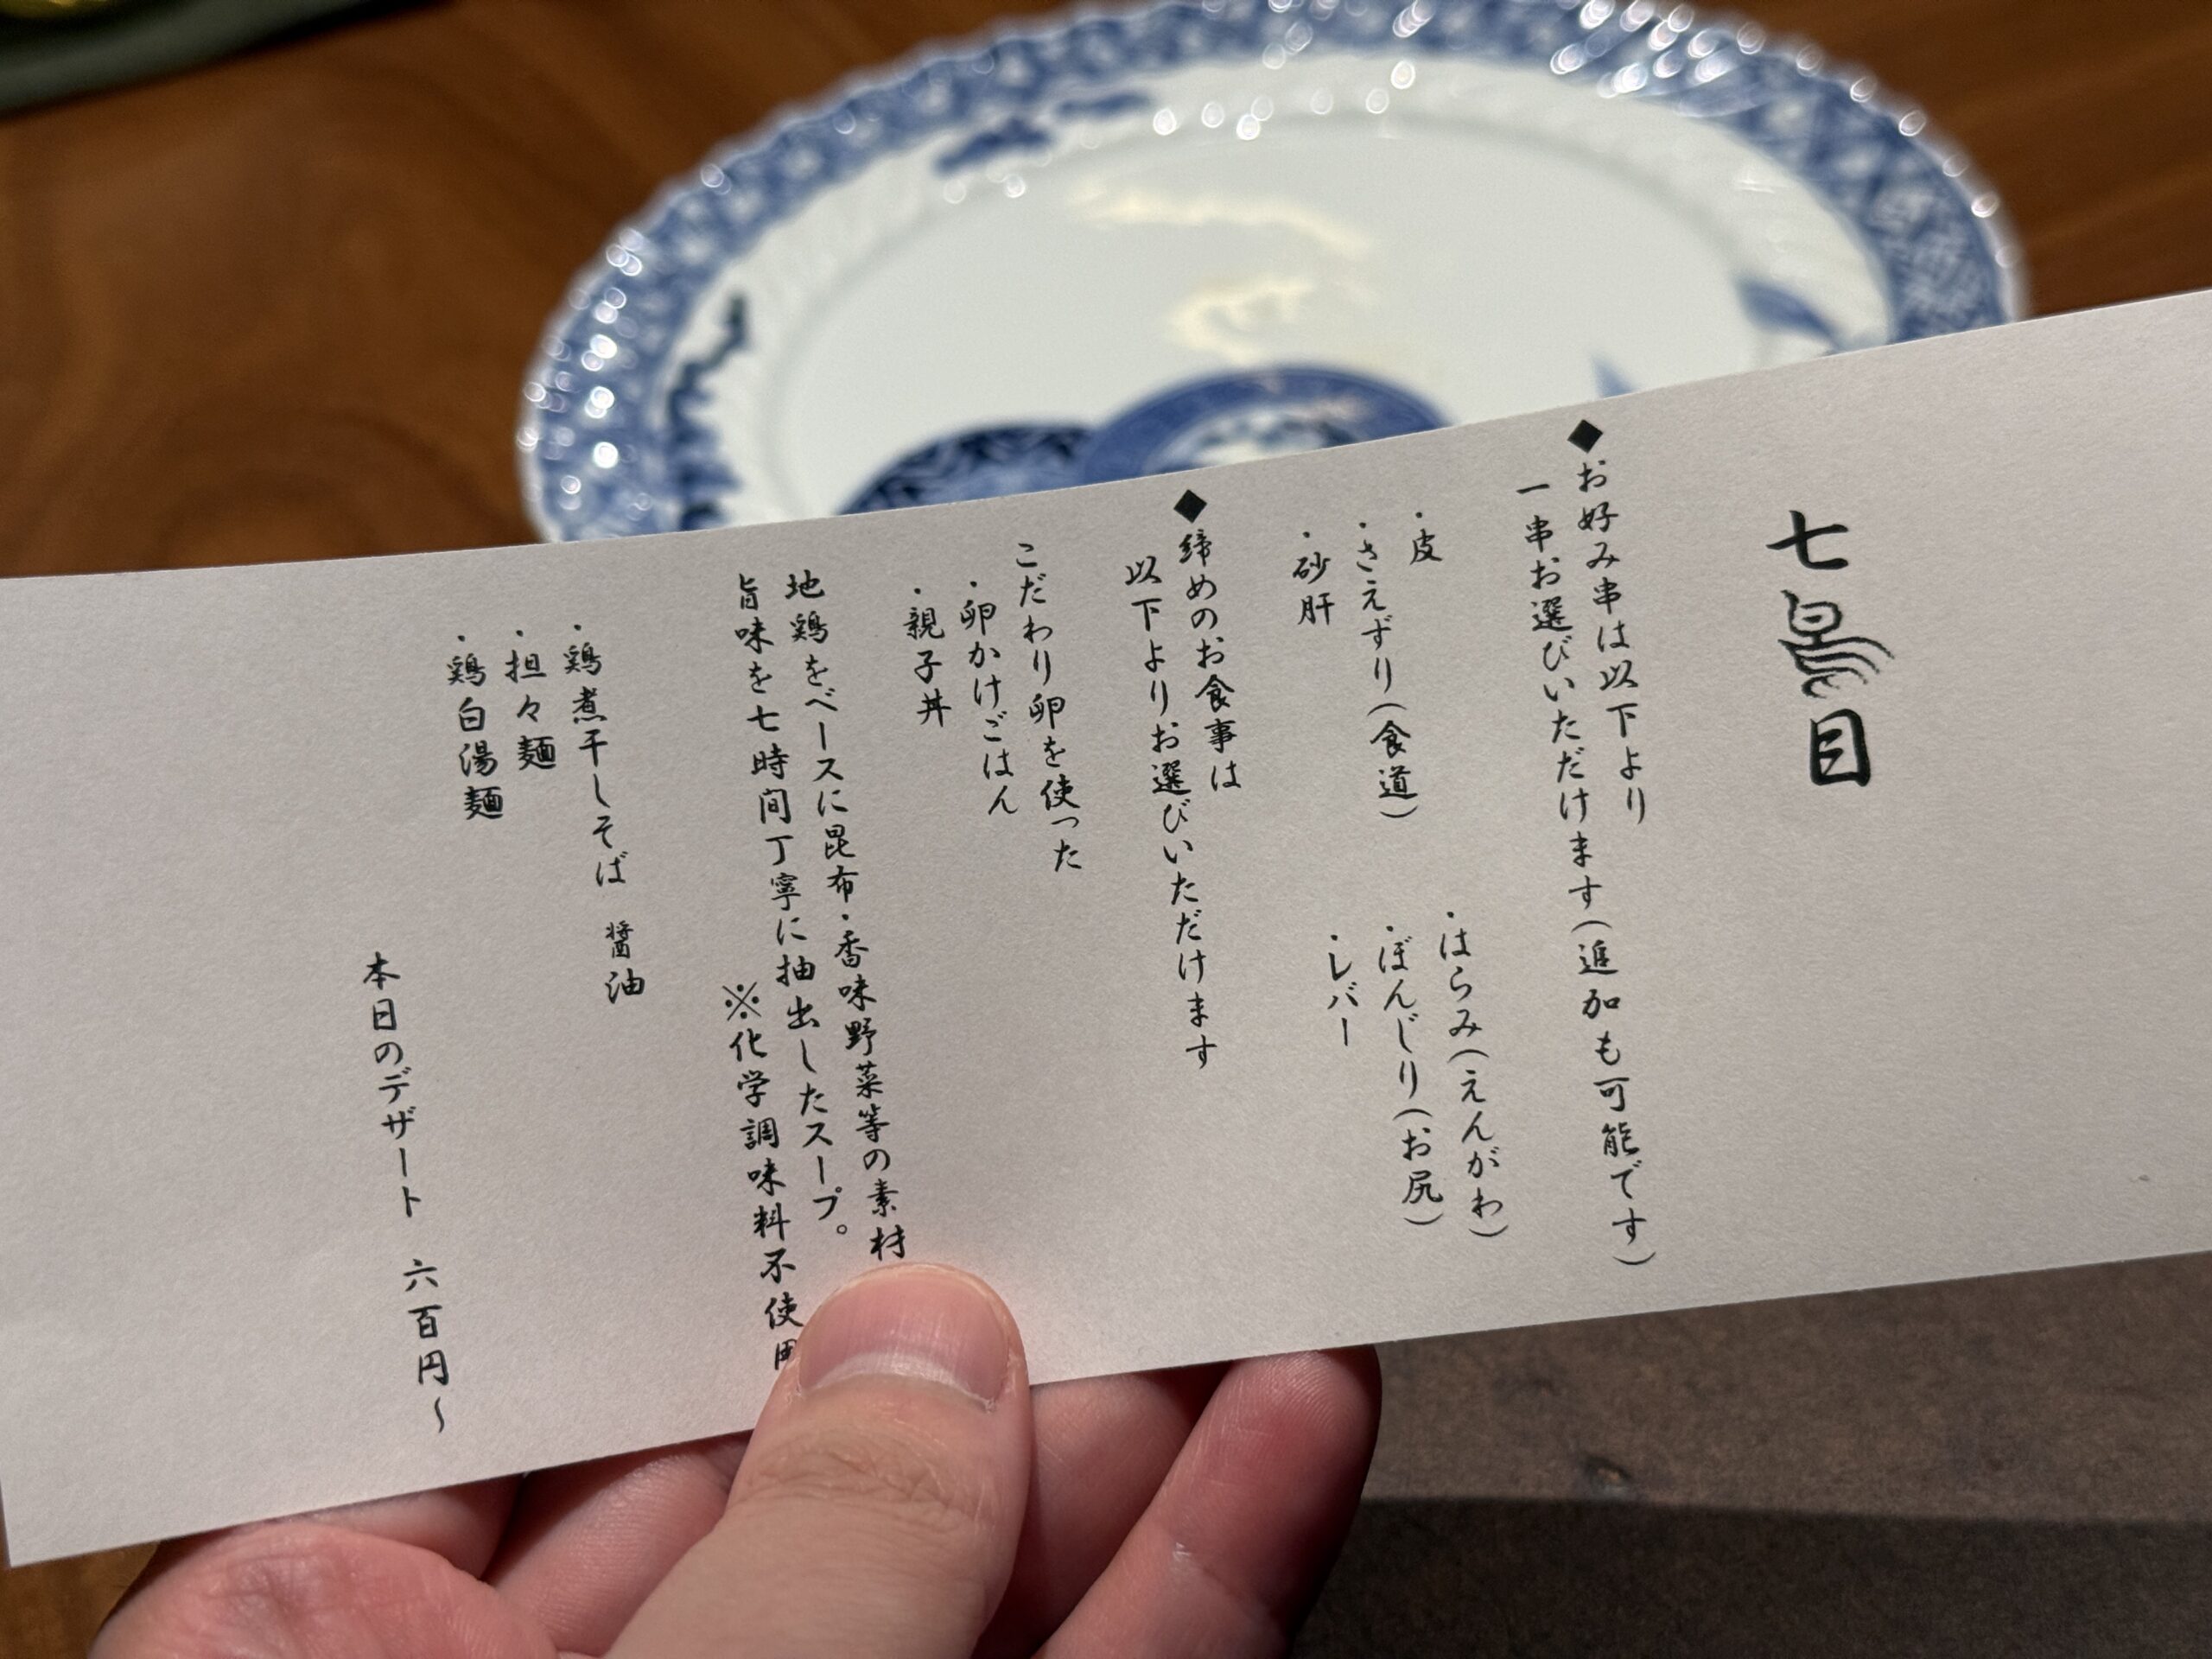 七鳥目
◆お好み串は以下より
一串お選びいただけます(追加も可能です)
・皮
・はらみ(えんがわ)
・さえずり(食道)
・ぼんじり(お尻)
・砂肝
・レバー
◆締めのお食事は
以下よりお選びいただけます
こだわり卵を使った
・卵かけごはん
・親子丼
地鶏をベースに昆布・香味野菜等の素材
旨味を七時間丁寧に抽出したスープ。
※化学調味料不使用
・鶏煮干しそば 醤油
・担々麺
・鶏白湯麺
本日のデザート 六百円～